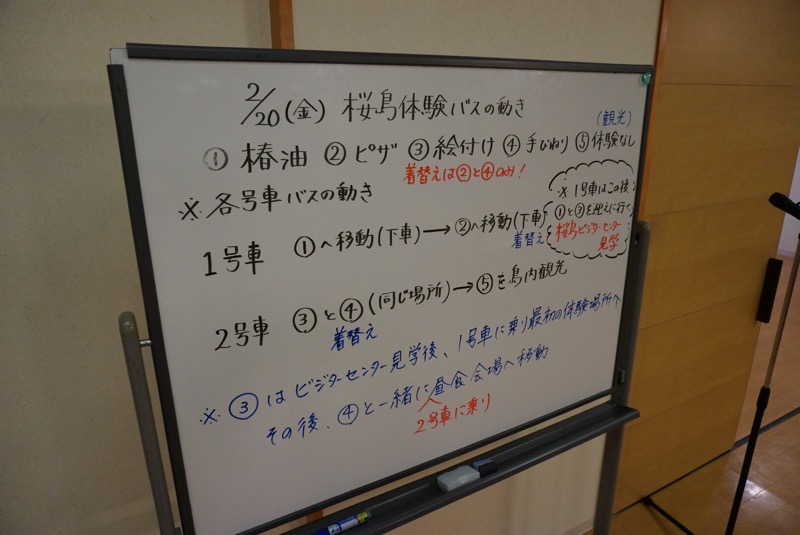 2/20(金) 桜島体験バスの動き
(観光)
① 椿油 ② ピザ ③ 絵付け ④ 手びねり ⑤ 体験なし
着替えは②と④のみ!
※各号車バスの動き
1号車 ①へ移動(下車)→②へ移動(下車)
着替え
※1号車はこの後
①と③を迎えに行って
桜島ビジターセンター
見学
2号車 ③と④(同じ場所)→⑤を島内観光
着替え
※③はビジターセンター見学後、1号車に乗り最初の体験場所へ
その後、④と一緒に昼食会場へ移動
2号車に乗り